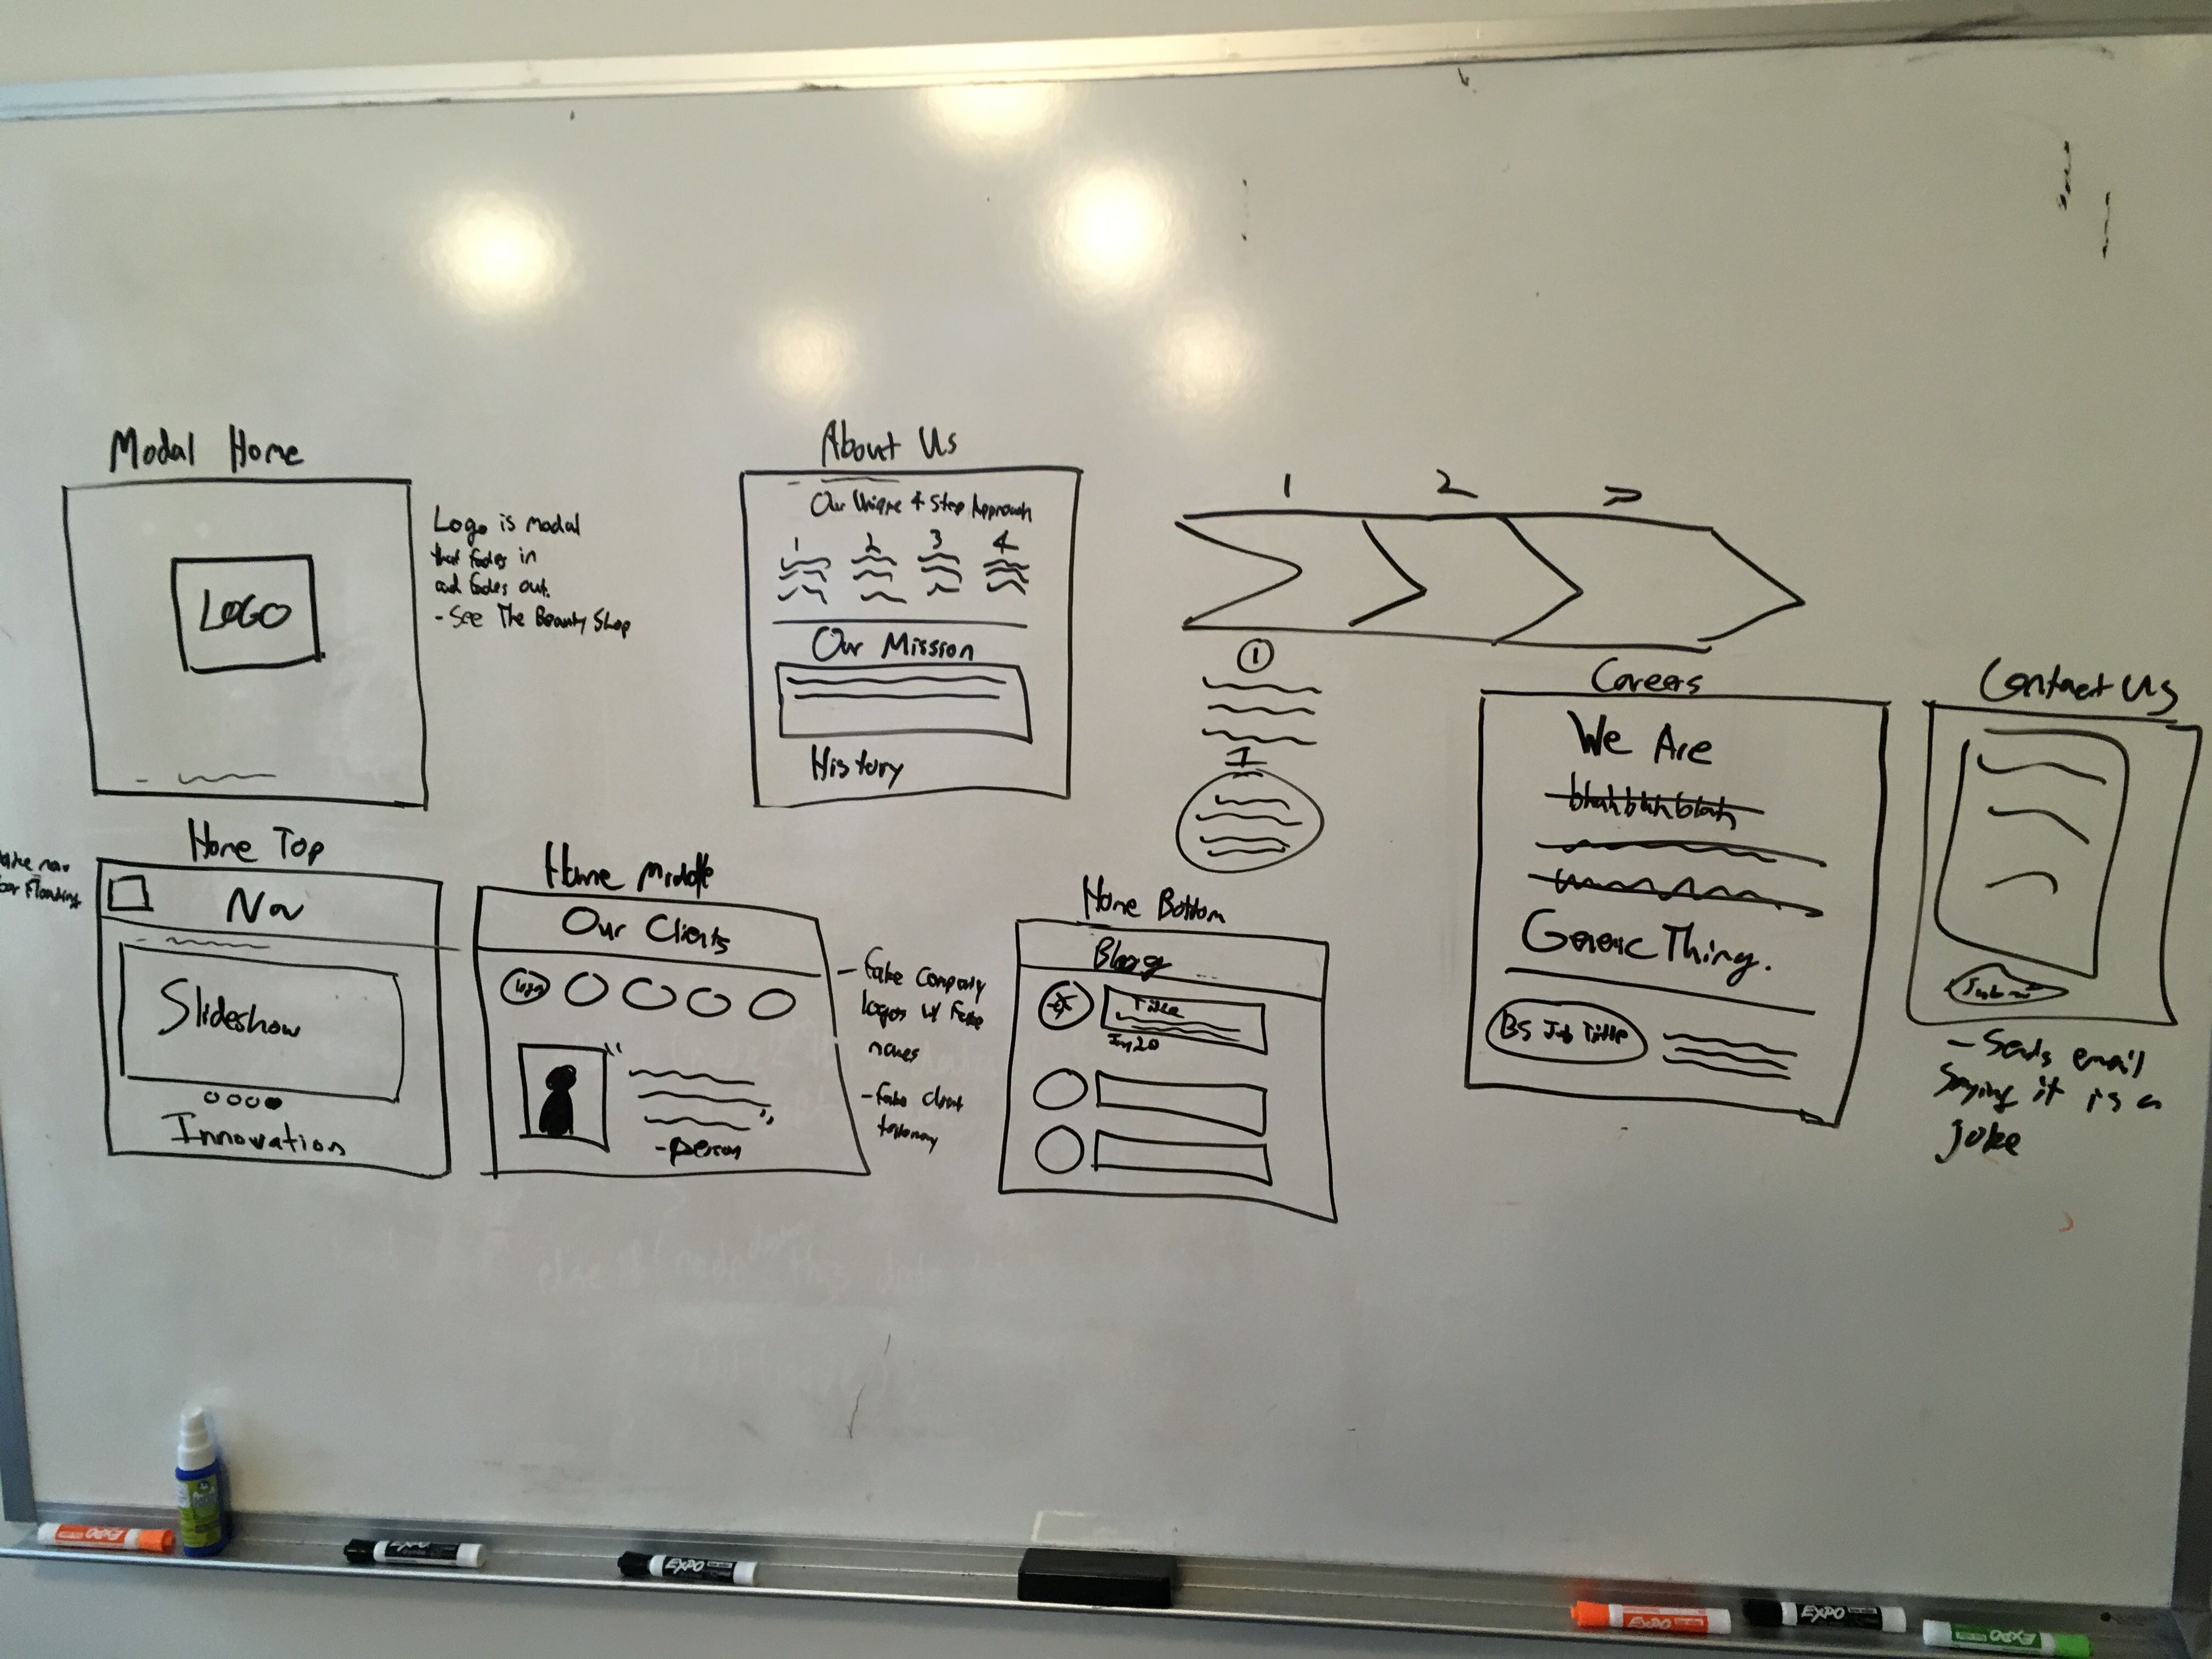 Modal Home
LOGO
Logo is modal
that fades in
and fades out.
- See The Beauty Shop
About Us
Our Unique 4 Step Approach
1 2 3 4
Our Mission
History
1 2
1
Careers
We Are
blah blah blah
Generic Thing.
BS Job Title
Contact Us
Submit
- Sends email
saying it is a
joke
Home Top
Nav
Slideshow
Innovation
Home Middle
Our Clients
logo
"
"
-person
- Fake Company
logos w/ Fake
names
- Fake client
Home Bottom
Title
EXPO
EXPO
EXPO
EXPO
EXPO
EXPO